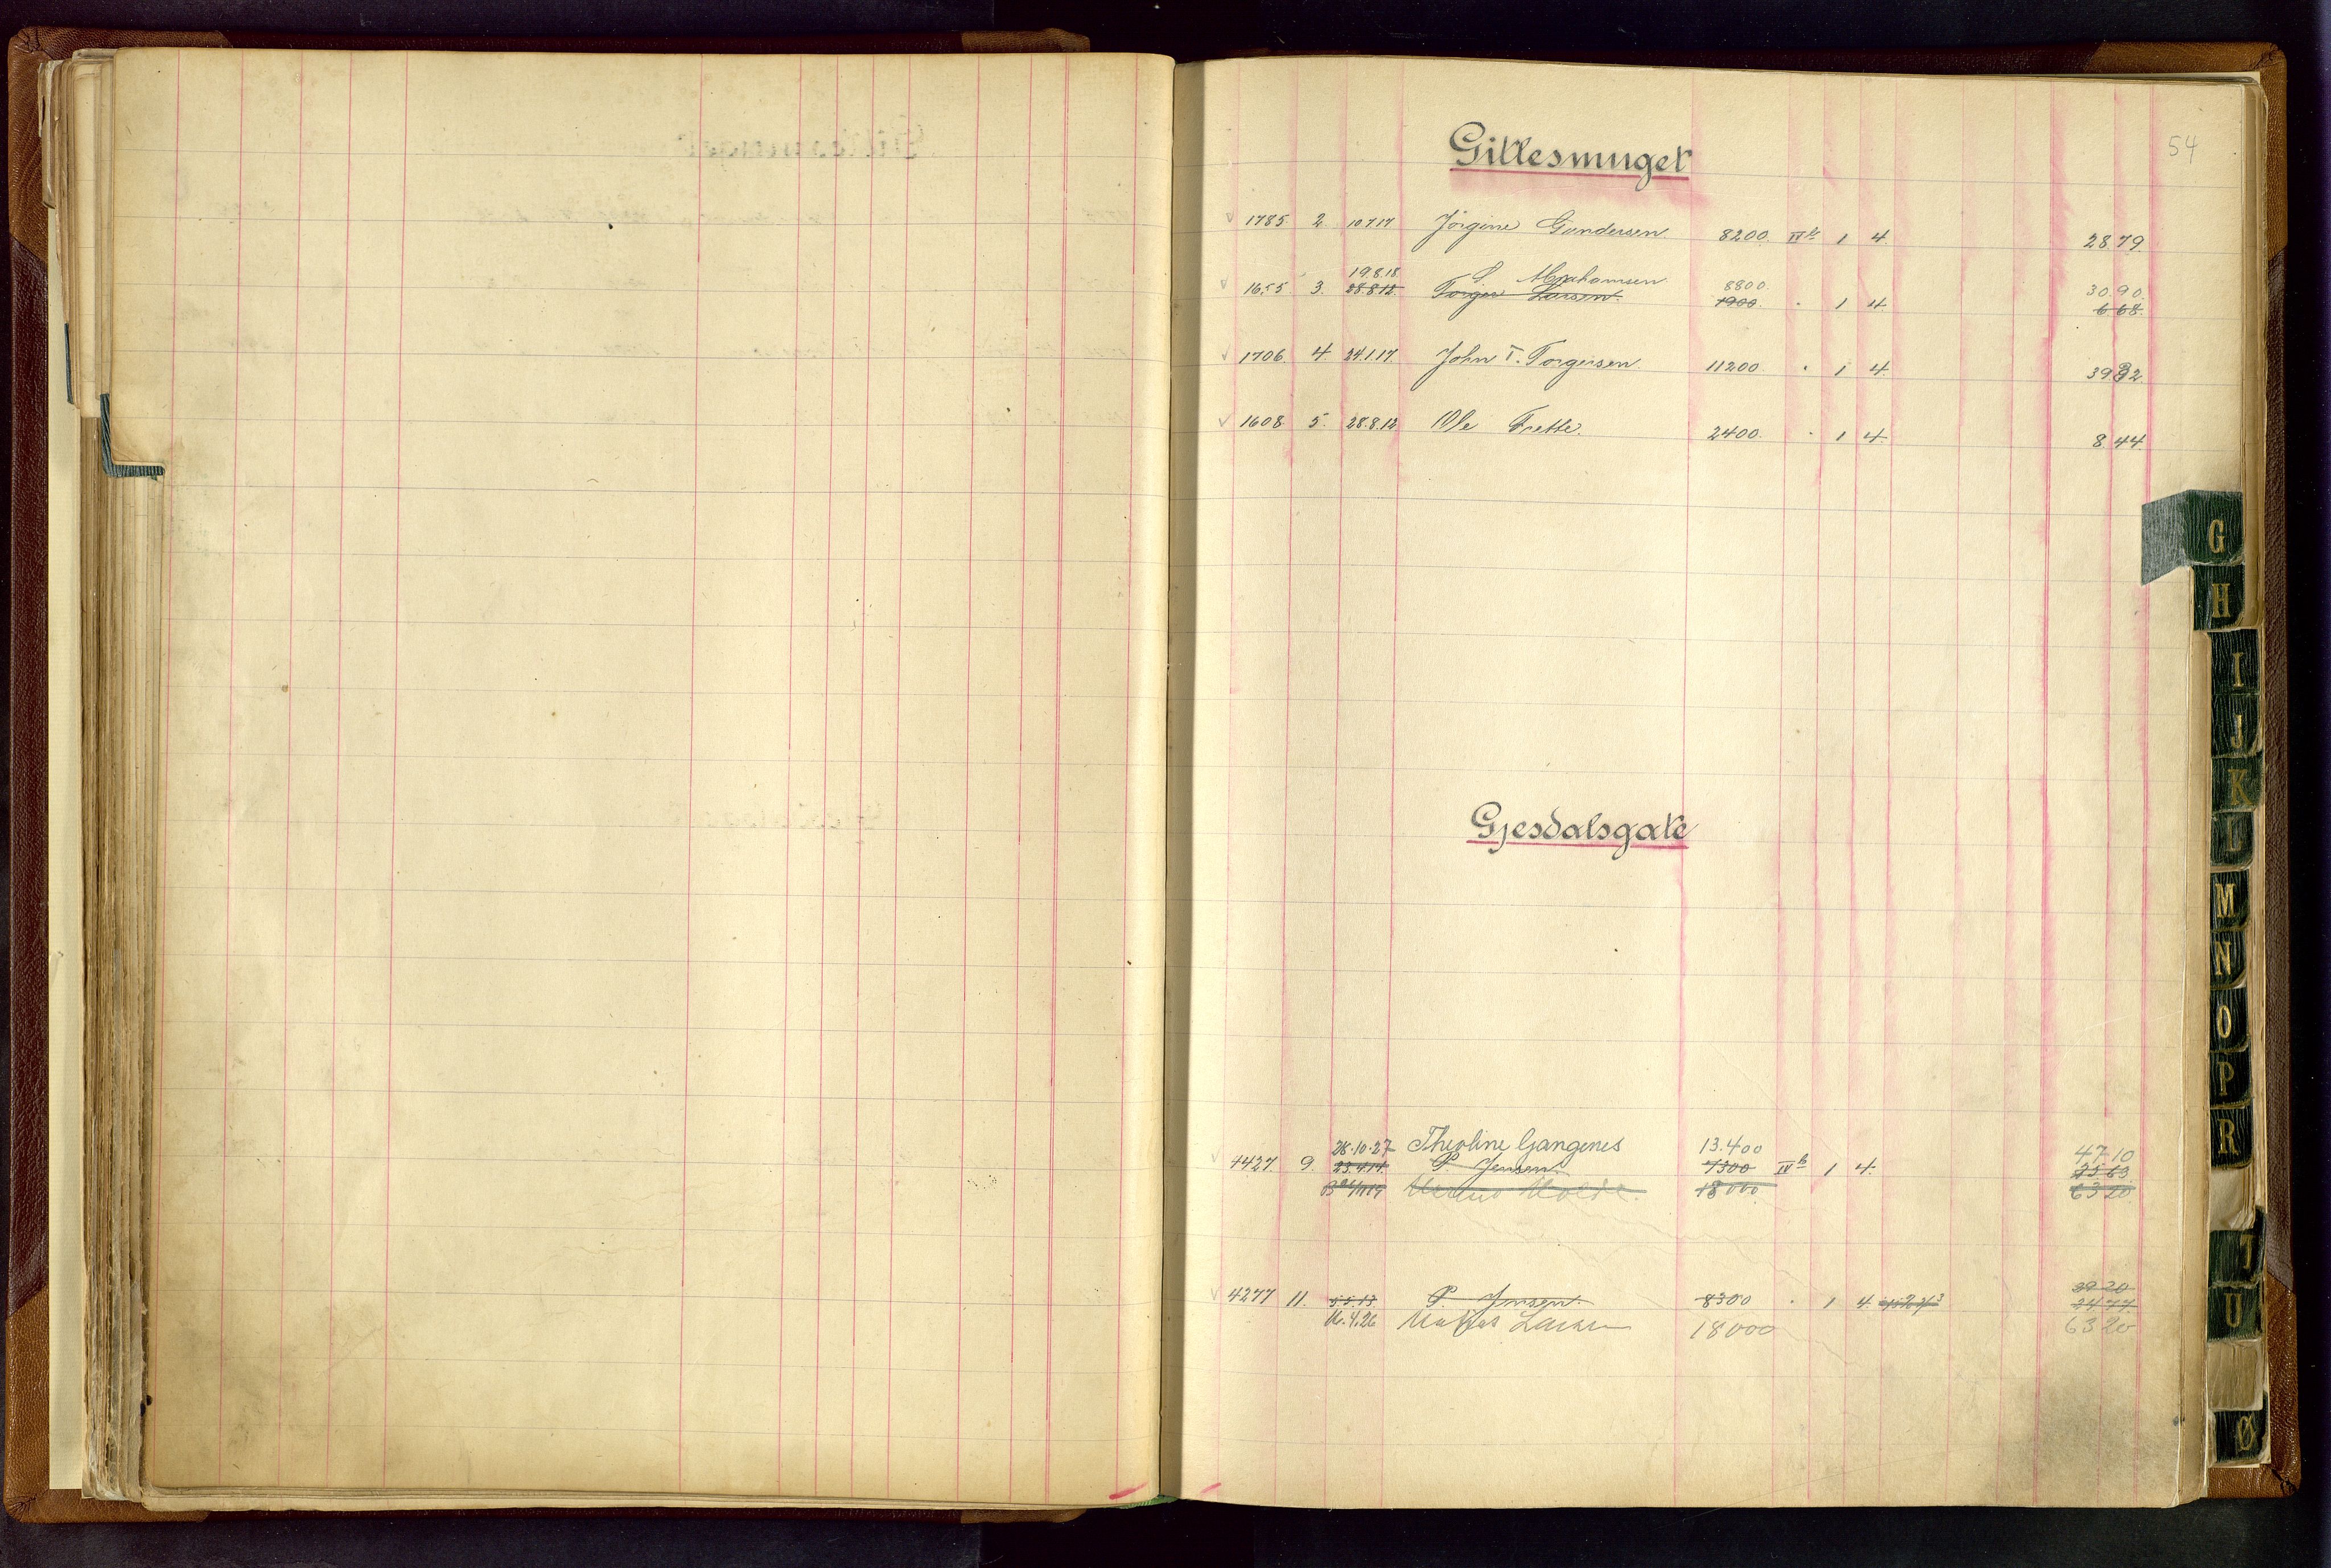 54
Gillesmuget
1785 2 10.7.17 Jörgine Gundersen 8200. IVb 1 4 28.79
19.8.18. S. Abrahamsen 8800. 30.90.
1655 3. 28.8.12 Torger Larsen 1900. " 1 4 6.68
1706. 4 24.1.17 John T. Torgersen 11200 " 1 4 39.32
1608 5. 28.8.12 Ole Trette. 2400. " 1 4. 8.44
Gjesdalsgate
28.10.27 Theoline Gangenes 13.400 47.10
4427 9. 23.4.14 P. Jensen 7300 IVb 1 4. 25.63
18000 63.20
39.20
4277 11. 5.5.13 P. Jensen. 8300 " 1 4. 24.77
16.4.26 Larsen 18000 63.20
G
H
I
J
K
L
M
N
O
P
R
U
Ø